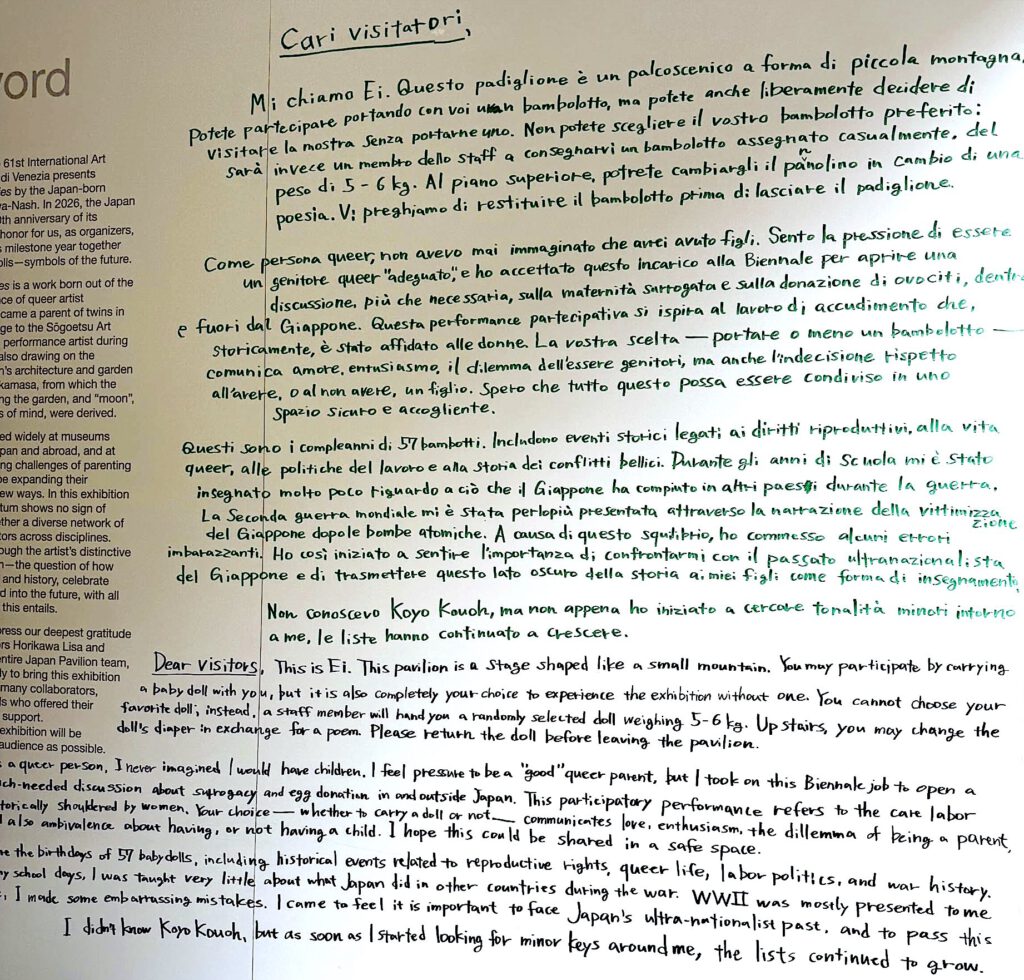 ord
61st International Art
di Venezia presents
es by the Japan-born
a-Nash. In 2026, the Japan
0th anniversary of its
honor for us, as organizers,
s milestone year together
olls—symbols of the future.
es is a work born out of the
ce of queer artist
came a parent of twins in
ge to the Sōgetsu Art
performance artist during
also drawing on the
n's architecture and garden
kamasa, from which the
ng the garden, and "moon",
s of mind, were derived.
ed widely at museums
pan and abroad, and at
ng challenges of parenting
be expanding their
ew ways. In this exhibition
tum shows no sign of
ether a diverse network of
tors across disciplines.
ough the artist's distinctive
n—the question of how
and history, celebrate
d into the future, with all
this entails.
press our deepest gratitude
rs Horikawa Lisa and
entire Japan Pavilion team,
ly to bring this exhibition
many collaborators,
ls who offered their
support.
exhibition will be
audience as possible.
Cari visitatori,
Mi chiamo Ei. Questo padiglione è un palcoscenico a forma di piccola montagna.
Potete partecipare portando con voi un bambolotto, ma potete anche liberamente decidere di
visitare la mostra senza portarne uno. Non potete scegliere il vostro bambolotto preferito:
sarà invece un membro dello staff a consegnarvi un bambolotto assegnato casualmente, del
peso di 5-6 kg. Al piano superiore, potrete cambiargli il pannolino in cambio di una
poesia. Vi preghiamo di restituire il bambolotto prima di lasciare il padiglione.
Come persona queer, non avevo mai immaginato che avrei avuto figli. Sento la pressione di essere
un genitore queer "adeguato", e ho accettato questo incarico alla Biennale per aprire una
discussione, più che necessaria, sulla maternità surrogata e sulla donazione di ovociti, dentro
e fuori dal Giappone. Questa performance partecipativa si ispira al lavoro di accudimento che,
storicamente, è stato affidato alle donne. La vostra scelta — portare o meno un bambolotto —
comunica amore, entusiasmo, il dilemma dell'essere genitori, ma anche l'indecisione rispetto
all'avere, o al non avere, un figlio. Spero che tutto questo possa essere condiviso in uno
spazio sicuro e accogliente.
Questi sono i compleanni di 57 bambotti. Includono eventi storici legati ai diritti riproduttivi, alla vita
queer, alle politiche del lavoro e alla storia dei conflitti bellici. Durante gli anni di scuola mi è stato
insegnato molto poco riguardo a ciò che il Giappone ha compiuto in altri paesi durante la guerra.
La Seconda guerra mondiale mi è stata perlopiù presentata attraverso la narrazione della vittimizzazione
del Giappone dopo le bombe atomiche. A causa di questo squilibrio, ho commesso alcuni errori
imbarazzanti. Ho così iniziato a sentire l'importanza di confrontarmi con il passato ultranazionalista
del Giappone e di trasmettere questo lato oscuro della storia ai miei figli come forma di insegnamento.
Non conoscevo Koyo Kouoh, ma non appena ho iniziato a cercare tonalità minori intorno
a me, le liste hanno continuato a crescere.
Dear visitors, This is Ei. This pavilion is a stage shaped like a small mountain. You may participate by carrying
a baby doll with you, but it is also completely your choice to experience the exhibition without one. You cannot choose your
favorite doll; instead, a staff member will hand you a randomly selected doll weighing 5-6 kg. Upstairs, you may change the
doll's diaper in exchange for a poem. Please return the doll before leaving the pavilion.
s a queer person, I never imagined I would have children. I feel pressure to be a "good" queer parent, but I took on this Biennale job to open a
ch-needed discussion about surrogacy and egg donation in and outside Japan. This participatory performance refers to the care labor
torically shouldered by women. Your choice — whether to carry a doll or not — communicates love, enthusiasm, the dillemma of being a parent,
d also ambivalence about having, or not having a child. I hope this could be shared in a safe space.
re the birthdays of 57 baby dolls, including historical events related to reproductive rights, queer life, labor politics, and war history.
y school days, I was taught very little about what Japan did in other countries during the war. WWII was mostly presented to me
, I made some embarrassing mistakes. I came to feel it is important to face Japan's ultra-nationalist past, and to pass this
I didn't know Koyo Kouoh, but as soon as I started looking for minor keys around me, the lists continued to grow.